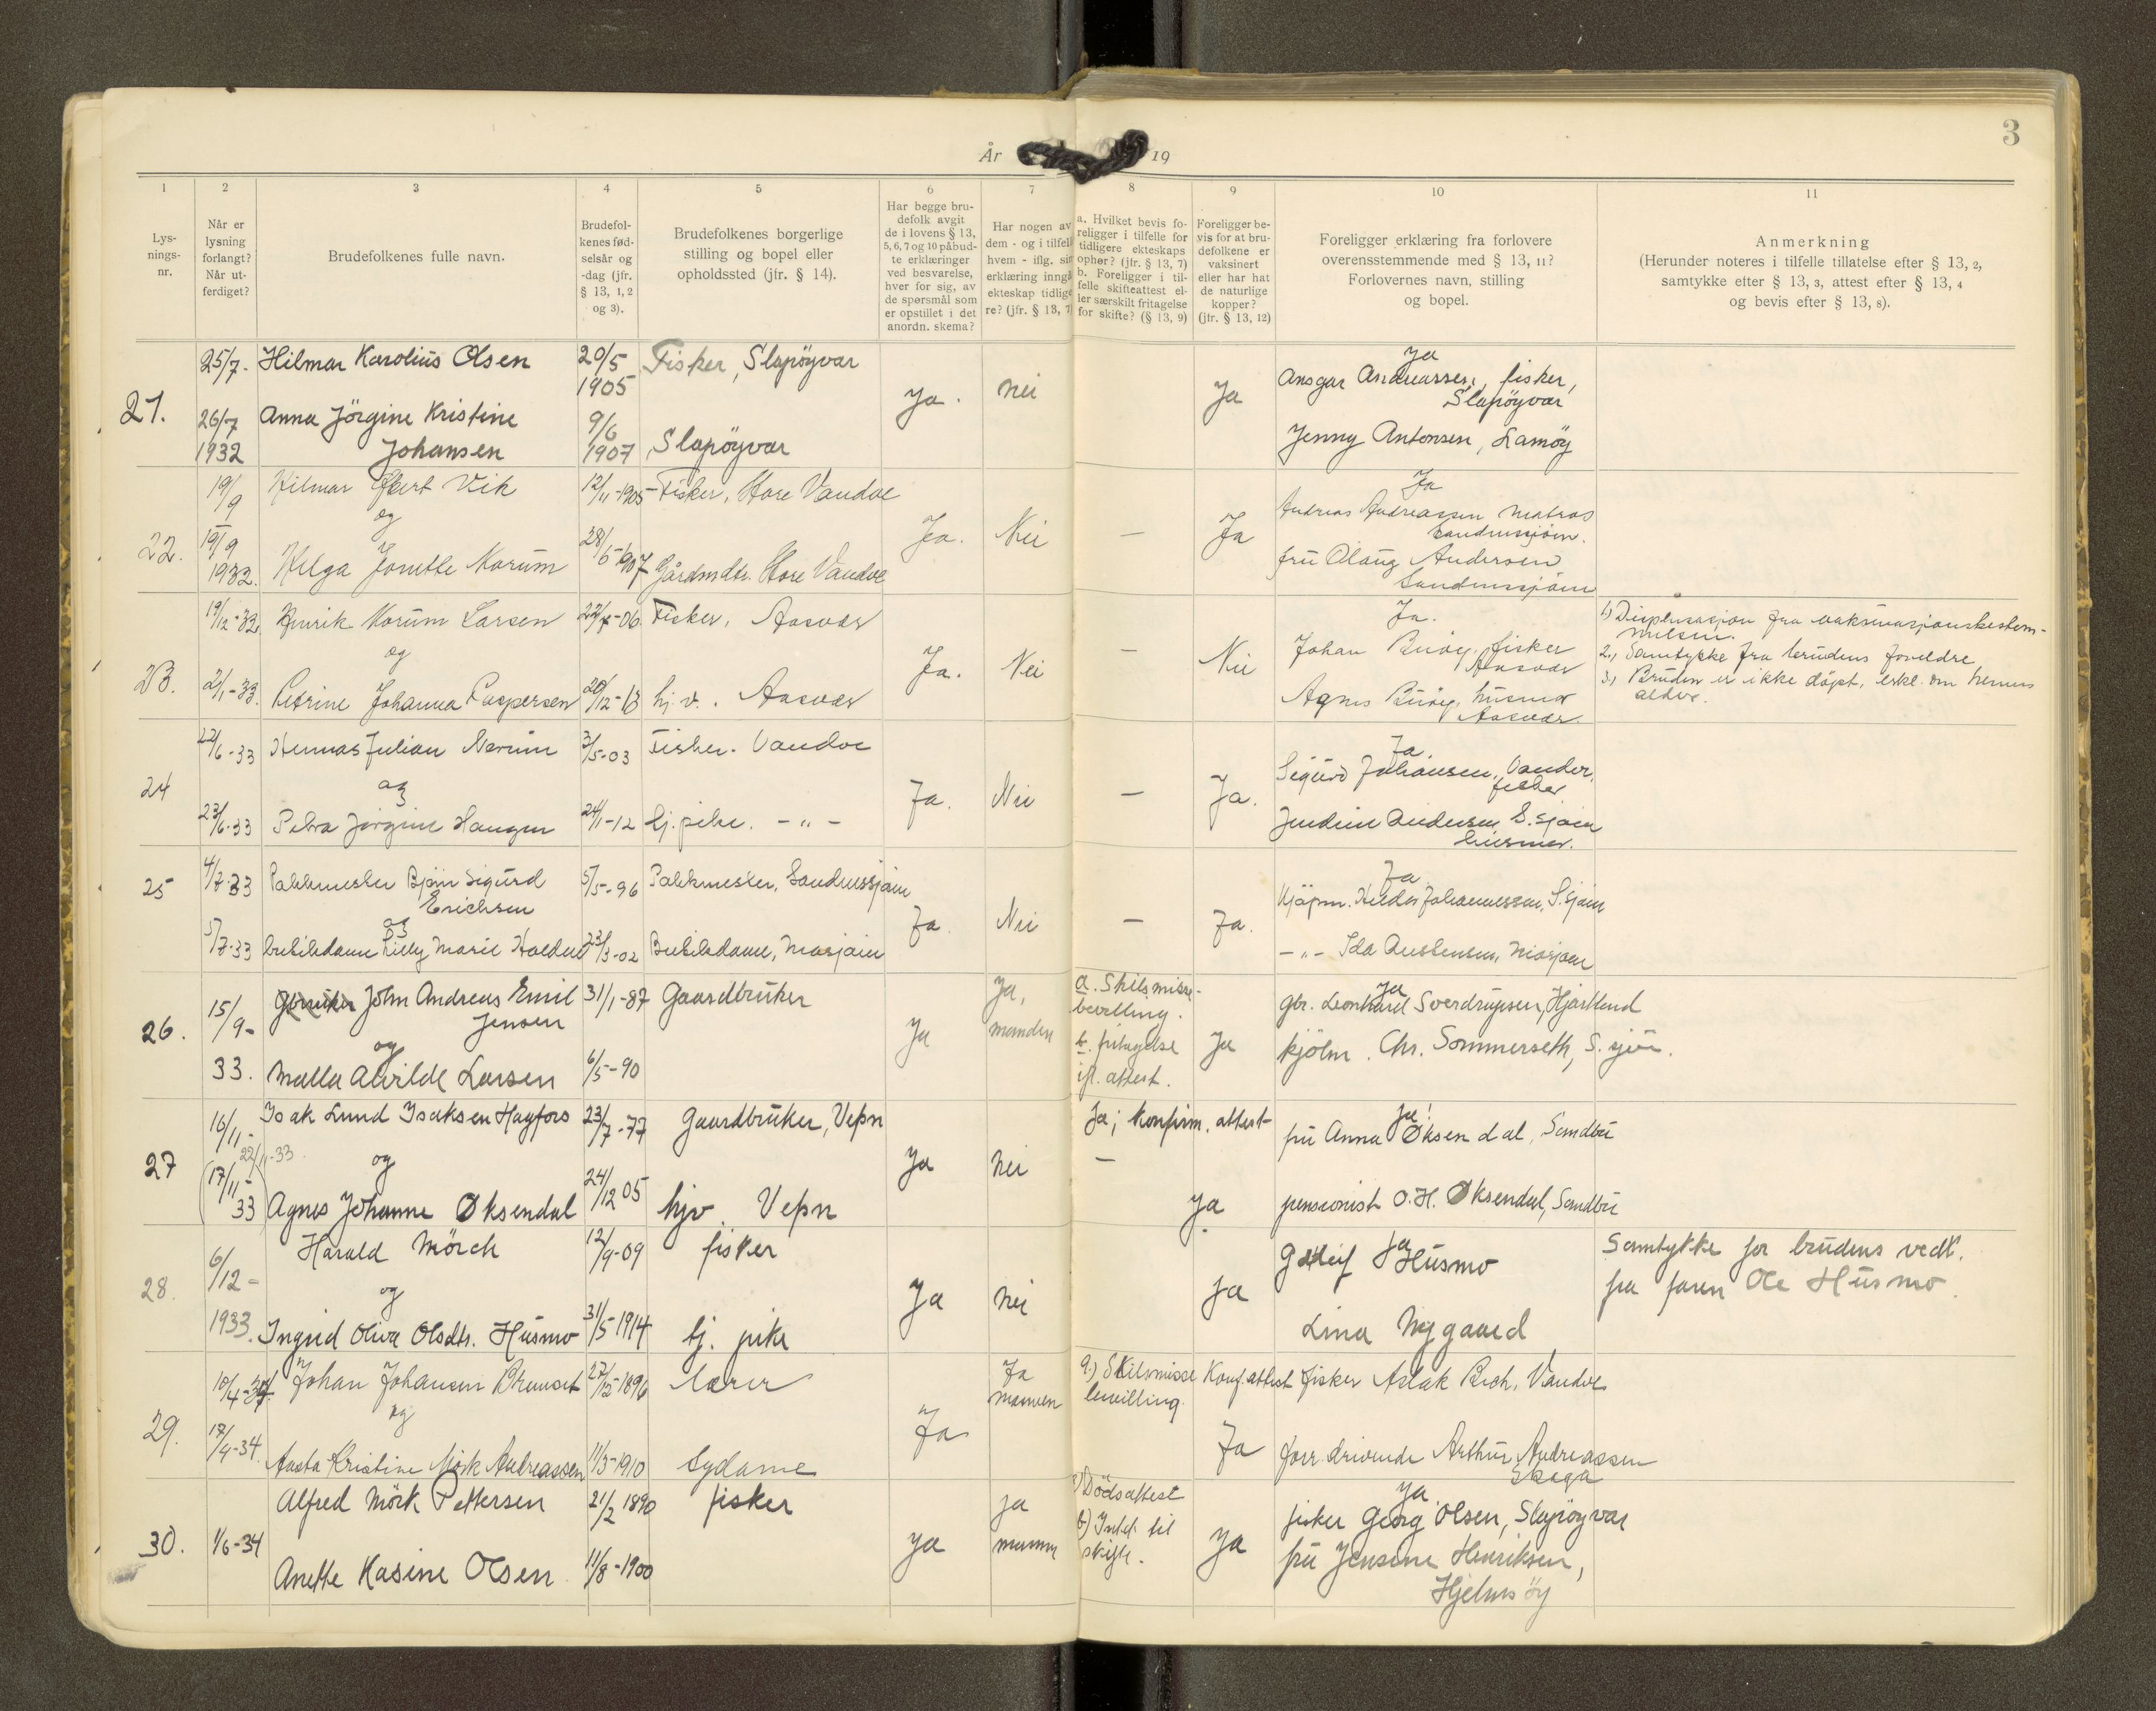 3
År 19
1 2 3 4 5 6 7 8 9 10 11
Lys-
nings-
nr.
Når er
lysning
forlangt?
Når ut-
ferdiget?
Brudefolkenes fulle navn.
Brudefol-
kenes fød-
selsår og
-dag (jfr.
§ 13, 1, 2
og 3).
Brudefolkenes borgerlige
stilling og bopel eller
opholdssted (jfr. § 14).
Har begge bru-
defolk avgit
de i lovens § 13,
5, 6, 7 og 10 påbud-
te erklæringer
ved besvarelse,
hver for sig, av
de spørsmål som
er opstillet i det
anordn. skema?
Har nogen av
dem - og i tilfell
hvem - iflg. sin
erklæring inngå
ekteskap tidlige
re? (jfr. § 13, 7
a. Hvilket bevis fo-
religger i tilfelle for
tidligere ekteskaps
ophør? (jfr. § 13, 7)
b. Foreligger i til-
felle skifteattest el-
ler særskilt fritagelse
for skifte? (§ 13, 9)
Foreligger be-
vis for at bru-
defolkene er
vaksinert
eller har hat
de naturlige
kopper?
(jfr. § 13, 12)
Foreligger erklæring fra forlovere
overensstemmende med § 13, 11?
Forlovernes navn, stilling
og bopel.
Anmerkning
(Herunder noteres i tilfelle tillatelse efter § 13, 2,
samtykke efter § 13, 3, attest efter § 13, 4
og bevis efter § 13, 8).
21.
25/7.
26/7
1932
Hilmar Karolius Olsen
Anna Jörgine Kristine
Johansen
20/5
1905
9/6
1907
Fisker, Slapöyvar
Slapöyvar
Ja.
nei
Ja
Ja
Ansgar Andreassen, fisker,
Slapöyvar
Jenny Antonsen, Lamöy
22.
19/9
19/9
1932.
Hilmar Vik
og
Helga Jonette Norum
12/11-1905
28/6-1907
Fisker, Store Vandve
Gårdmdtr. Store Vandve
Ja.
Nei
—
Ja
Ja
Andreas Andreassen matros
Sandnessjöen.
fru Olaug Andersen
Sandnessjöen
23.
19/12-32.
2/1-33.
Henrik Norum Larsen
og
Petrine Johanna Caspersen
Fisker, Aasvær
hj. v. Aasvær
Ja.
Nei
—
Nei
Ja.
Johan Buöy, fisker
Aasvær
Agnes Buöy, husmor
Aasvær.
1.) Dispensasjon fra vaksinasjonsbestem-
melsen.
2., Samtykke fra brudens foreldre
3, Bruden er ikke döpt, erkl. om hennes
alder.
24
22/6-33
23/6-33
Hermas Julian Norum
og
Petra Jörgine Haugen
3/5-03
24/1-12
Fisker. Vandve
hj. pike. -"-
Ja.
Nei
—
Ja.
Ja.
Sigurd Johansen, Vandve,
fisker
Andersen S.sjöen
husmor.
25
4/7-33
5/7-33
Pakkmester Björn Sigurd
Erichsen
og
butikkdame Lilly Marie Halden
5/5-96
23/3-02
Pakkmester, Sandnessjöen
Butikkdame, Mosjöen
Ja.
Nei
—
Ja.
Ja
Kjöpm. Johannessen, S.sjöen
-"- Ida Austensen, Mosjöen
26.
15/9-
33.
John Andreas Emil
Jensen
og
Malla Alvilde Larsen
31/1-87
6/5-90
Gaardbruker
Ja
Ja,
manden
a. Skilsmisse-
bevilling.
b. fritagelse
ifl. attest.
Ja
Ja
gbr. Leonhard Sverdrupsen, Hjartland
kjölm. Chr. Sommerseth, S. sjöen.
27
16/11-
22/11-33
(17/11-
33
Isak Lund Isaksen Hagfors
og
Agnes Johanne Øksendal
23/7-77
24/12 05
Gaardbruker, Vefsn
hjv. Vefsn
Ja
nei
Ja; konfirm. attest-
—
Ja
Ja!
fru Anna Øksendal, Sandbu
pensionist O.H. Øksendal, Sandbu
28.
6/12-
1933.
Harald Mörch
og
Ingrid Oliva Olsdtr. Husmo
12/9-09
31/5-1914
fisker
hj. pike
Ja
nei
Ja
Ja
Husmo
Lina Nygaard
Samtykke for brudens vedk.
fra faren Ole Husmo.
29.
10/4-34.
17/4-34.
Johan Johansen
og
Aasta Kristine Mörk Andreassen
27/12-1896
11/3-1910
lærer
Sydame
Ja
Ja
mannen
a.) Skilsmisse
bevilling.
Konf. attest
Ja
fisker Aslak Bech, Vandve
forr. drivende Arthur Andreassen
Skaga
30.
1/6-34
Alfred Mörk Pettersen
Anette Kasine Olsen
21/2 1890
11/8-1900
fisker
Ja
Ja
mannen
a) Dödsattest
b) Intet til
skifte.
Ja
Ja
fisker Georg Olsen, Slapöyvar
fru Jensine Henriksen,
Hjelmsöy